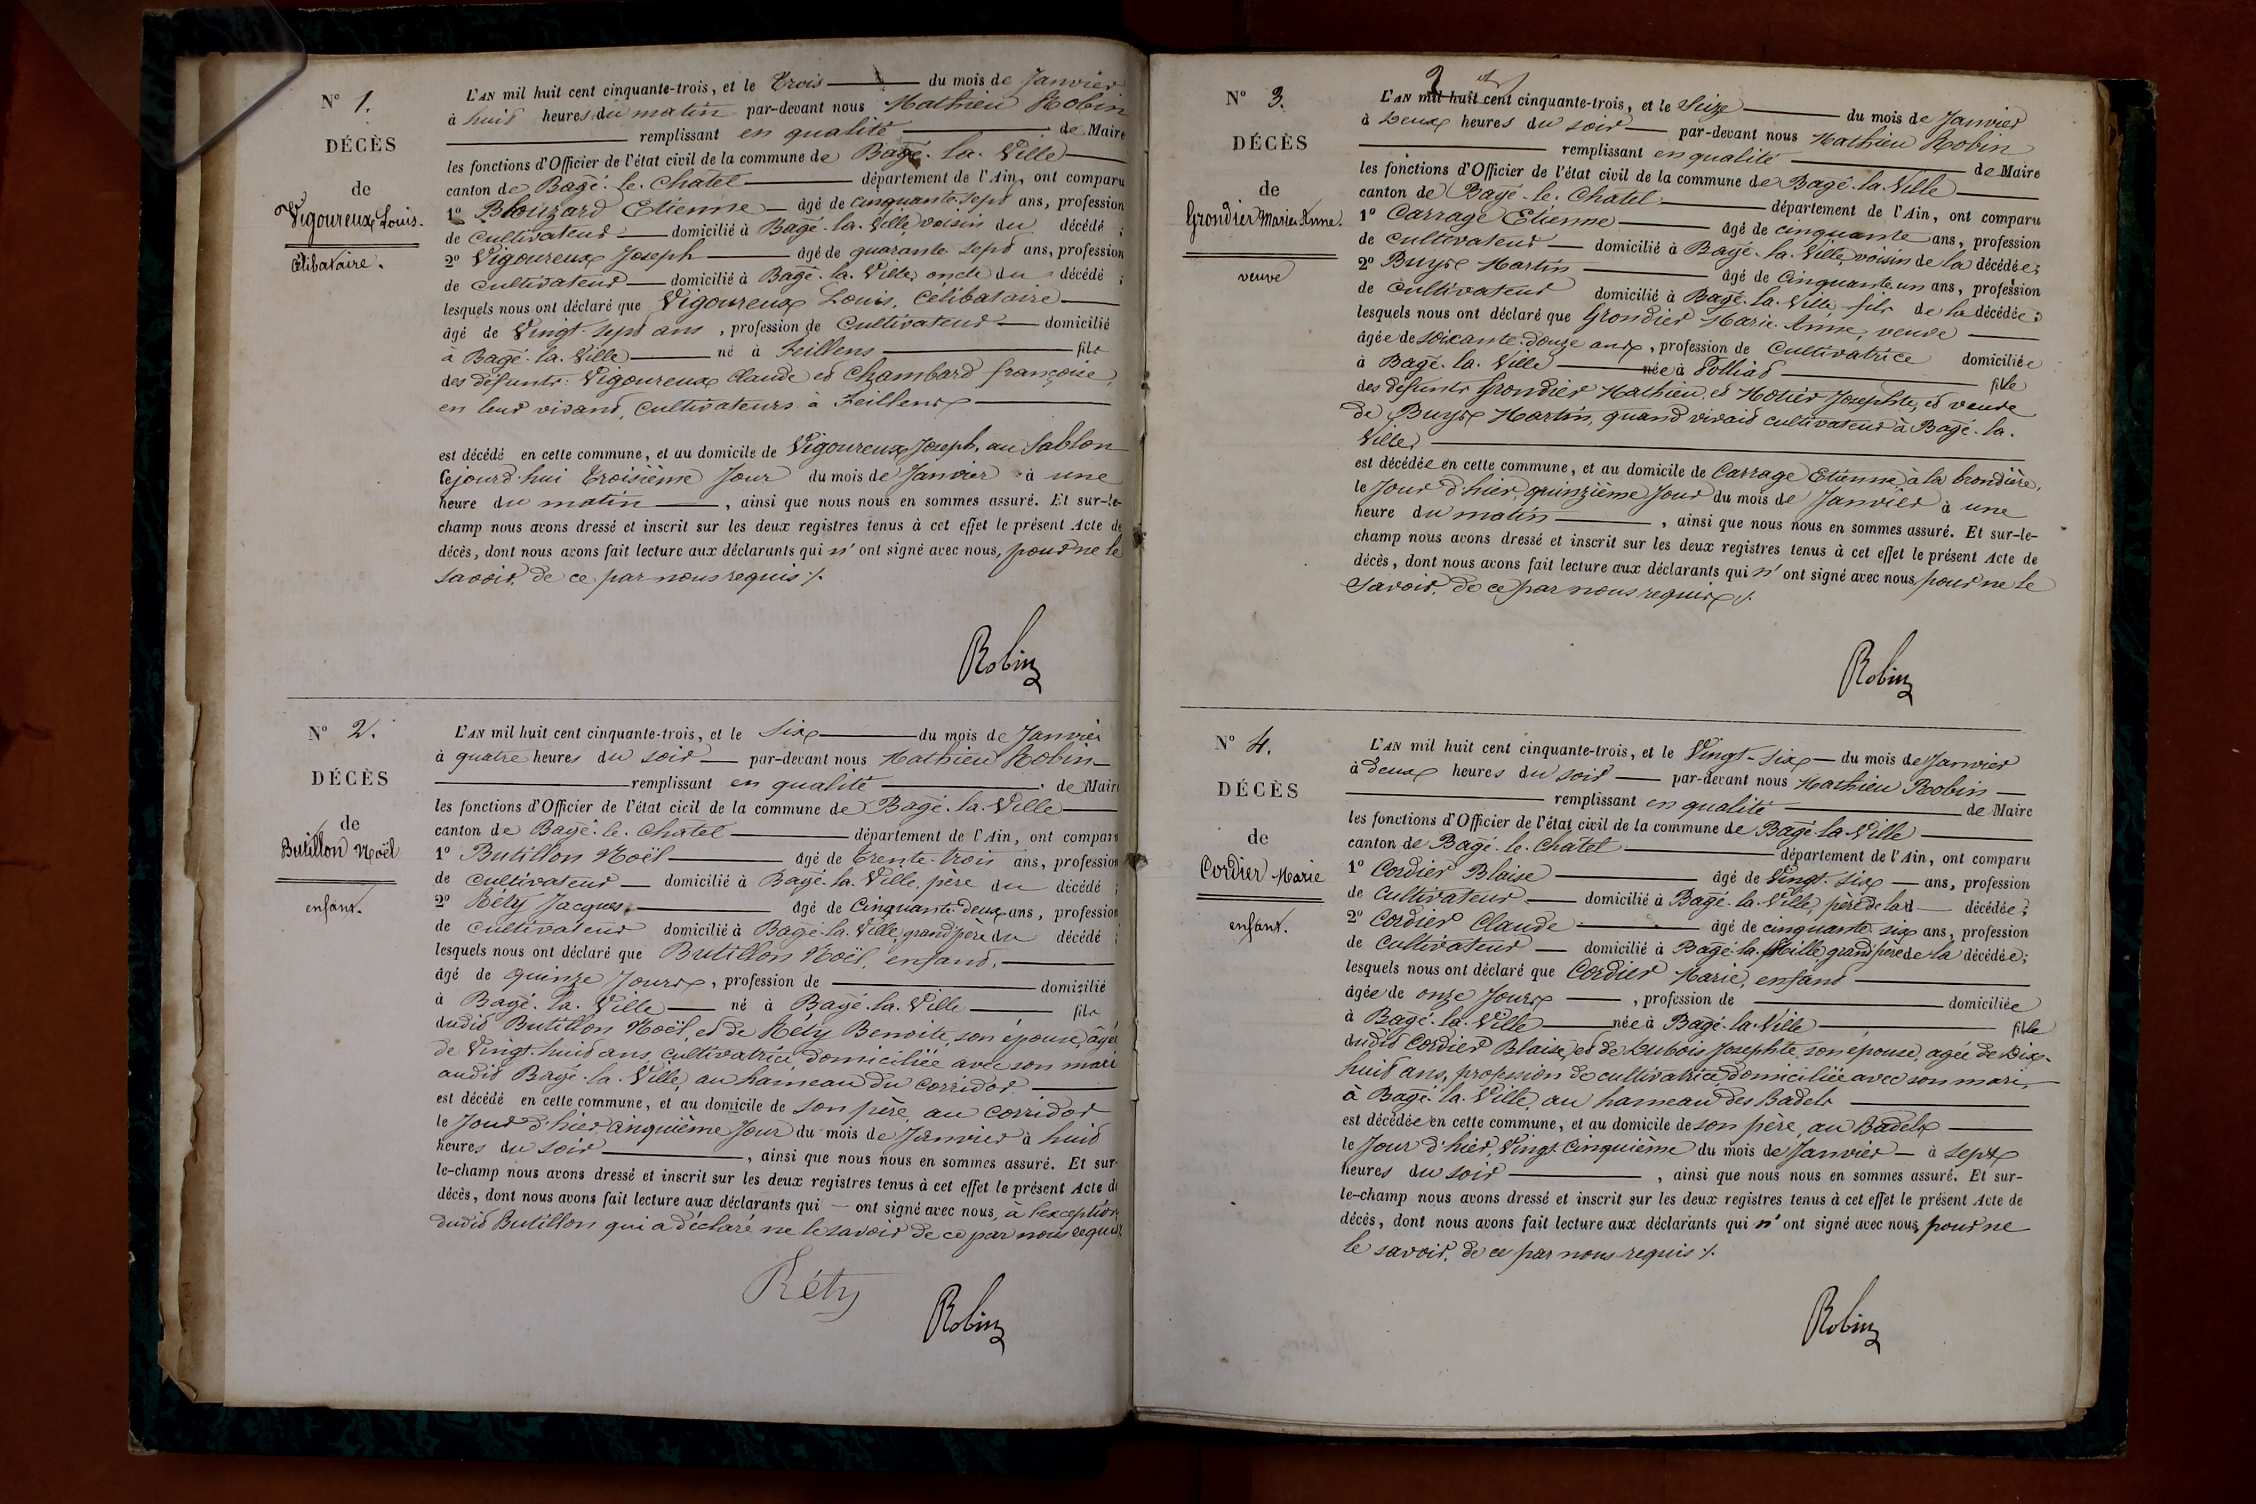 N° 1.
DÉCÈS
de
Vigoureux Louis.
Célibataire.
L'AN mil huit cent cinquante-trois, et le Trois du mois de Janvier
à huit heures du matin par-devant nous Mathieu Robin
remplissant en qualité de Maire
les fonctions d'Officier de l'état civil de la commune de Bagé-la-Ville
canton de Bagé-le-Chatel département de l'Ain, ont comparu
1° Blouzard Etienne âgé de cinquante-sept ans, profession
de cultivateur domicilié à Bagé-la-Ville voisin du décédé ;
2° Vigoureux Joseph âgé de quarante-sept ans, profession
de cultivateur domicilié à Bagé-la-Ville, oncle du décédé ;
lesquels nous ont déclaré que Vigoureux Louis, célibataire
âgé de Vingt-sept ans, profession de Cultivateur domicilié
à Bagé-la-Ville né à Feillens fils
des défunts: Vigoureux Claude et Chambard françoise,
en leur vivant, Cultivateurs à Feillens
est décédé en cette commune, et au domicile de Vigoureux Joseph, au Sablon
Cejourd'hui troisième Jour du mois de Janvier à une
heure du matin, ainsi que nous nous en sommes assuré. Et sur-le-
champ nous avons dressé et inscrit sur les deux registres tenus à cet effet le présent Acte de
décès, dont nous avons fait lecture aux déclarants qui n'ont signé avec nous, pour ne le
savoir, de ce par nous requis ./.
Robin
N° 2.
DÉCÈS
de
Butillon Noël
enfant.
L'AN mil huit cent cinquante-trois, et le Six du mois de Janvier
à quatre heures du soir par-devant nous Mathieu Robin
remplissant en qualité de Maire
les fonctions d'Officier de l'état civil de la commune de Bagé-la-Ville
canton de Bagé-le-Châtel département de l'Ain, ont comparu
1° Butillon Noël âgé de trente-trois ans, profession
de cultivateur domicilié à Bagé-la-Ville, père du décédé ;
2° Réty Jacques âgé de Cinquante-deux ans, profession
de cultivateur domicilié à Bagé-la-Ville, grand'père du décédé ;
lesquels nous ont déclaré que Butillon Noël, enfant,
âgé de quinze Jours, profession de domicilié
à Bagé-la-Ville né à Bagé-la-Ville fils
dudit Butillon Noël, et de Réty Benoite, son épouse, âgée
de Vingt-huit ans, cultivatrice, domiciliée avec son mari
audit Bagé-la-Ville, au hameau du Corridor
est décédé en cette commune, et au domicile de son père, au Corridor
le Jour d'hier cinquième Jour du mois de Janvier à huit
heures du soir, ainsi que nous nous en sommes assuré. Et sur-
le-champ nous avons dressé et inscrit sur les deux registres tenus à cet effet le présent Acte de
décès, dont nous avons fait lecture aux déclarants qui ont signé avec nous, à l'exception
dudit Butillon qui a déclaré ne le savoir de ce par nous requis.
Réty
Robin
N° 3.
DÉCÈS
de
Grondier Marie-Anne.
veuve
2
L'AN mil huit cent cinquante-trois, et le Seize du mois de Janvier
à Deux heures du soir par-devant nous Mathieu Robin
remplissant en qualité de Maire
les fonctions d'Officier de l'état civil de la commune de Bagé-la-Ville
canton de Bagé-le-Chatel département de l'Ain, ont comparu
1° Carrage Etienne âgé de cinquante ans, profession
de cultivateur domicilié à Bagé-la-Ville, voisin de la décédée ;
2° Buyse Martin âgé de Cinquante-un ans, profession
de cultivateur domicilié à Bagé-la-Ville fils de la décédée ;
lesquels nous ont déclaré que Grondier Marie-Anne, veuve
âgée de soixante-douze ans, profession de Cultivatrice domiciliée
à Bagé-la-Ville née à Polliat fille
des défunts Grondier Mathieu, et Motier Josephte, et veuve
de Buyse Martin, quand vivait cultivateur à Bagé-la-
Ville
est décédée en cette commune, et au domicile de Carrage Etienne, à la brondière,
le Jour d'hier, quinzième Jour du mois de Janvier à une
heure du matin, ainsi que nous nous en sommes assuré. Et sur-le-
champ nous avons dressé et inscrit sur les deux registres tenus à cet effet le présent Acte de
décès, dont nous avons fait lecture aux déclarants qui n'ont signé avec nous, pour ne le
Savoir, de ce par nous requis ./.
Robin
N° 4.
DÉCÈS
de
Cordier Marie
enfant.
L'AN mil huit cent cinquante-trois, et le Vingt-six du mois de Janvier
à deux heures du soir par-devant nous Mathieu Robin
remplissant en qualité de Maire
les fonctions d'Officier de l'état civil de la commune de Bagé-la-Ville
canton de Bagé-le-Châtel département de l'Ain, ont comparu
1° Cordier Blaise âgé de Vingt-six ans, profession
de Cultivateur domicilié à Bagé-la-Ville, père de la décédée ;
2° Cordier Claude âgé de cinquante-six ans, profession
de cultivateur domicilié à Bagé-la-Ville, grand'père de la décédée ;
lesquels nous ont déclaré que Cordier Marie, enfant
âgée de onze Jours, profession de domiciliée
à Bagé-la-Ville née à Bagé-la-Ville fille
dudit Cordier Blaise, et de Dubois Josephte, son épouse, agée de Dix-
huit ans, profession de cultivatrice, domiciliée avec son mari,
à Bagé-la-Ville, au hameau des Badels
est décédée en cette commune, et au domicile de son père, au Badels
le Jour d'hier, Vingt-Cinquième du mois de Janvier à sept
heures du soir, ainsi que nous nous en sommes assuré. Et sur-
le-champ nous avons dressé et inscrit sur les deux registres tenus à cet effet le présent Acte de
décès, dont nous avons fait lecture aux déclarants qui n'ont signé avec nous, pour ne
le savoir, de ce par nous requis ./.
Robin